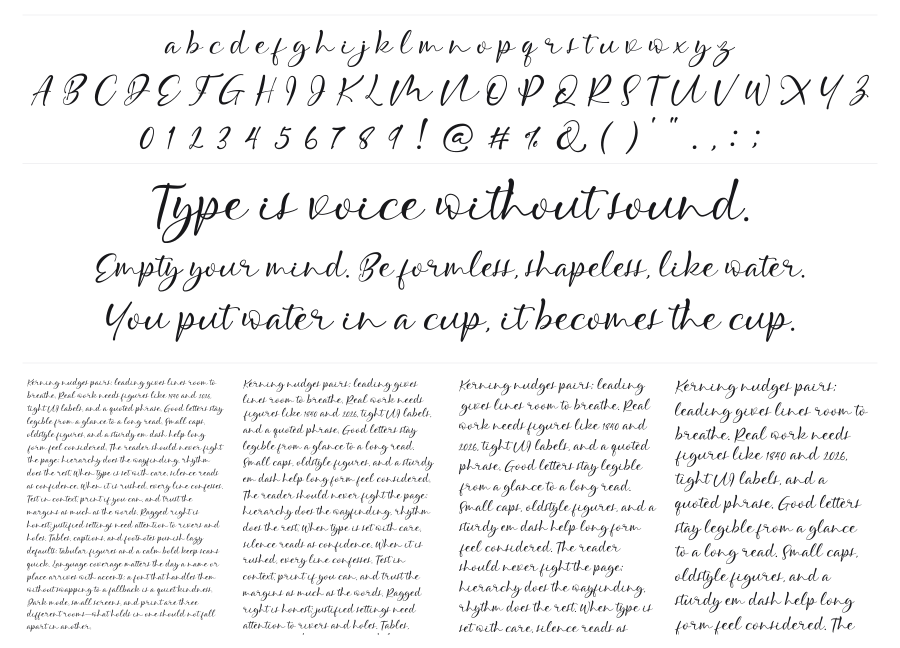 a b c d e f g h i j k l m n o p q r s t u v w x y z
A B C D E F G H I J K L M N O P Q R S T U V W X Y Z
0 1 2 3 4 5 6 7 8 9 ! @ # % & ( ) ' " . , : ;
Type is voice without sound.
Empty your mind. Be formless, shapeless, like water.
You put water in a cup, it becomes the cup.
Kerning nudges pairs; leading gives lines room to
breathe. Real work needs figures like 1890 and 2026,
tight UI labels, and a quoted phrase. Good letters stay
legible from a glance to a long read. Small caps,
oldstyle figures, and a sturdy em dash help long
form feel considered. The reader should never fight
the page: hierarchy does the wayfinding, rhythm
does the rest. When type is set with care, silence reads
as confidence. When it is rushed, every line confesses.
Test in context, print if you can, and trust the
margins as much as the words. Ragged right is
honest; justified settings need attention to rivers and
holes. Tables, captions, and footnotes punish lazy
defaults: tabular figures and a calm bold keep scans
quick. Language coverage matters the day a name or
place arrives with accents: a font that handles them
without swapping to a fallback is a quiet kindness.
Dark mode, small screens, and print are three
different rooms—what holds in one should not fall
apart in another.
Kerning nudges pairs; leading gives
lines room to breathe. Real work needs
figures like 1890 and 2026, tight UI labels,
and a quoted phrase. Good letters stay
legible from a glance to a long read.
Small caps, oldstyle figures, and a sturdy
em dash help long form feel considered.
The reader should never fight the page:
hierarchy does the wayfinding, rhythm
does the rest. When type is set with care,
silence reads as confidence. When it is
rushed, every line confesses. Test in
context, print if you can, and trust the
margins as much as the words. Ragged
right is honest; justified settings need
attention to rivers and holes. Tables,
Kerning nudges pairs; leading
gives lines room to breathe. Real
work needs figures like 1890 and
2026, tight UI labels, and a quoted
phrase. Good letters stay legible
from a glance to a long read.
Small caps, oldstyle figures, and a
sturdy em dash help long form
feel considered. The reader
should never fight the page:
hierarchy does the wayfinding,
rhythm does the rest. When type is
set with care, silence reads as
Kerning nudges pairs;
leading gives lines room to
breathe. Real work needs
figures like 1890 and 2026,
tight UI labels, and a
quoted phrase. Good letters
stay legible from a glance
to a long read. Small caps,
oldstyle figures, and a
sturdy em dash help long
form feel considered. The